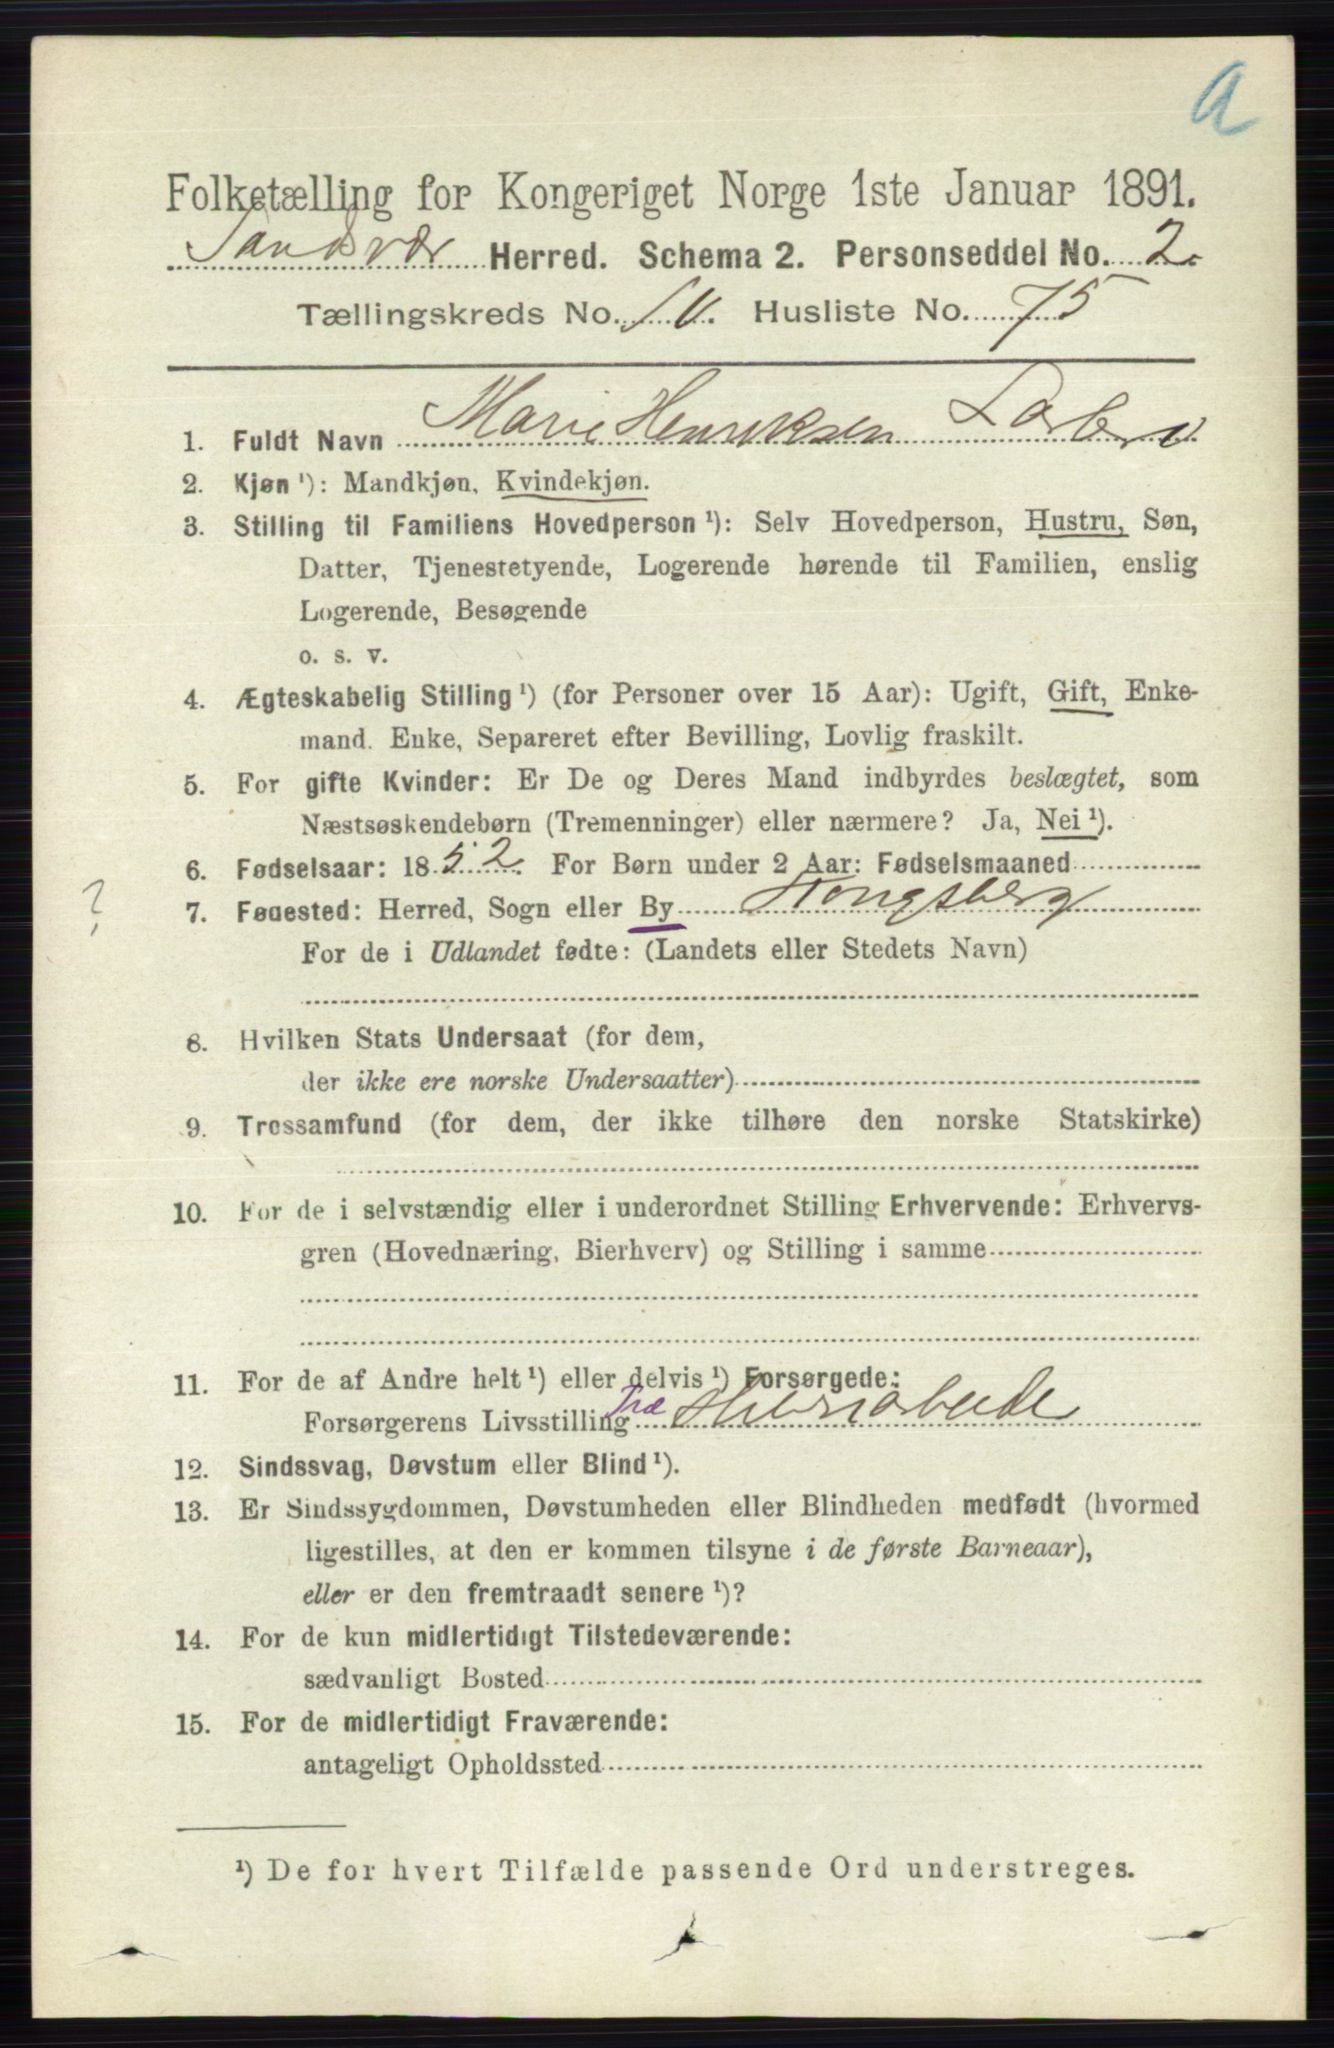 a
Folketælling for Kongeriget Norge 1ste Januar 1891.
Sandsvær Herred. Schema 2. Personseddel No. 2.
Tællingskreds No. IV. Husliste No. 75
1. Fuldt Navn Marie Henriksen
2. Kjøn ¹): Mandkjøn, Kvindekjøn.
3. Stilling til Familiens Hovedperson ¹): Selv Hovedperson, Hustru, Søn,
Datter, Tjenestetyende, Logerende hørende til Familien, enslig
Logerende, Besøgende
o. s. v.
4. Ægteskabelig Stilling ¹) (for Personer over 15 Aar): Ugift, Gift, Enke-
mand. Enke, Separeret efter Bevilling, Lovlig fraskilt.
5. For gifte Kvinder: Er De og Deres Mand indbyrdes beslægtet, som
Næstsøskendebørn (Tremenninger) eller nærmere? Ja, Nei ¹).
6. Fødselsaar: 1852. For Børn under 2 Aar: Fødselsmaaned
? 7. Fødested: Herred, Sogn eller By Kongsberg
For de i Udlandet fødte: (Landets eller Stedets Navn)
8. Hvilken Stats Undersaat (for dem,
der ikke ere norske Undersaatter)
9. Trossamfund (for dem, der ikke tilhøre den norske Statskirke)
10. For de i selvstændig eller i underordnet Stilling Erhvervende: Erhvervs-
gren (Hovednæring, Bierhverv) og Stilling i samme
11. For de af Andre helt ¹) eller delvis ¹) Forsørgede:
Forsørgerens Livsstilling Træ
12. Sindssvag, Døvstum eller Blind ¹).
13. Er Sindssygdommen, Døvstumheden eller Blindheden medfødt (hvormed
ligestilles, at den er kommen tilsyne i de første Barneaar),
eller er den fremtraadt senere ¹)?
14. For de kun midlertidigt Tilstedeværende:
sædvanligt Bosted
15. For de midlertidigt Fraværende:
antageligt Opholdssted
¹) De for hvert Tilfælde passende Ord understreges.